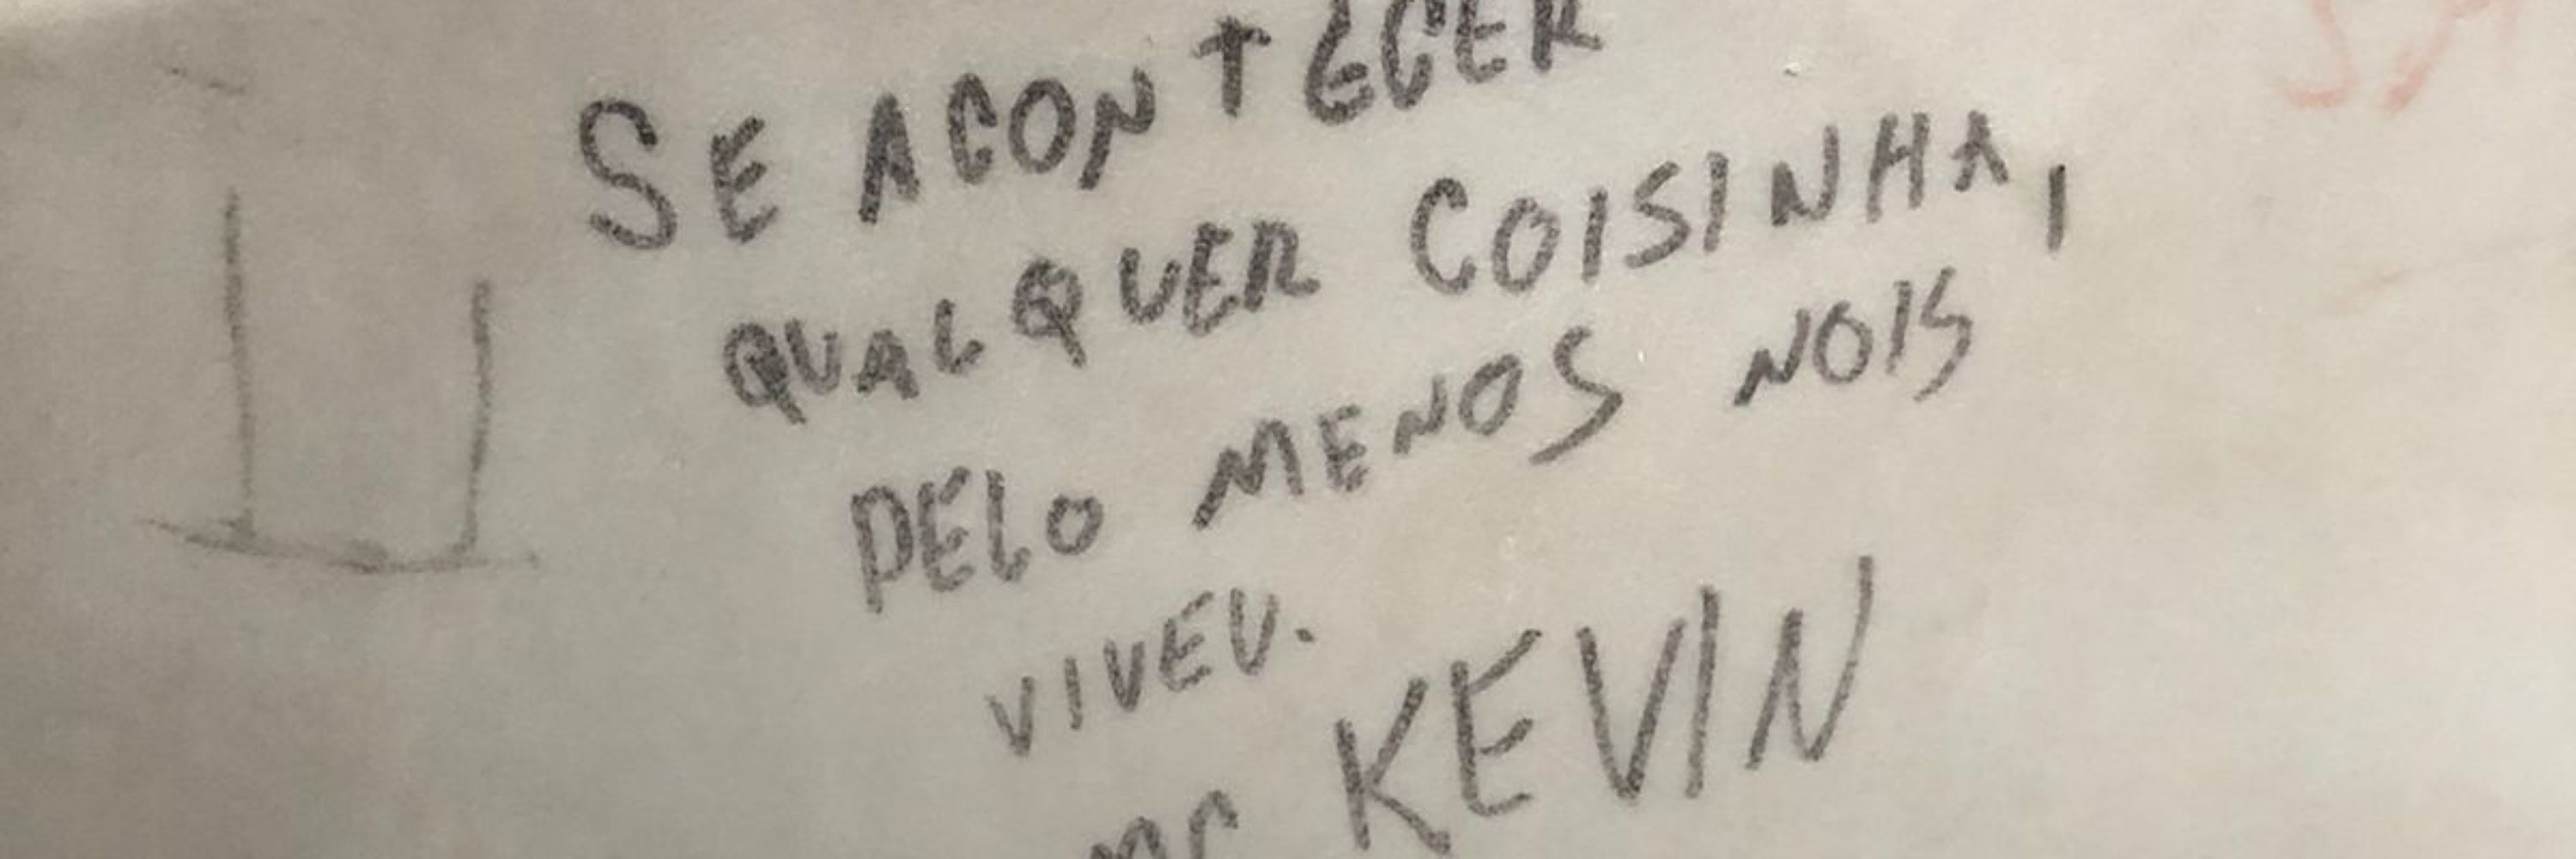 SE ACONTECER
QUALQUER COISINHA,
PELO MENOS NOIS
VIVEU.
MC KEVIN